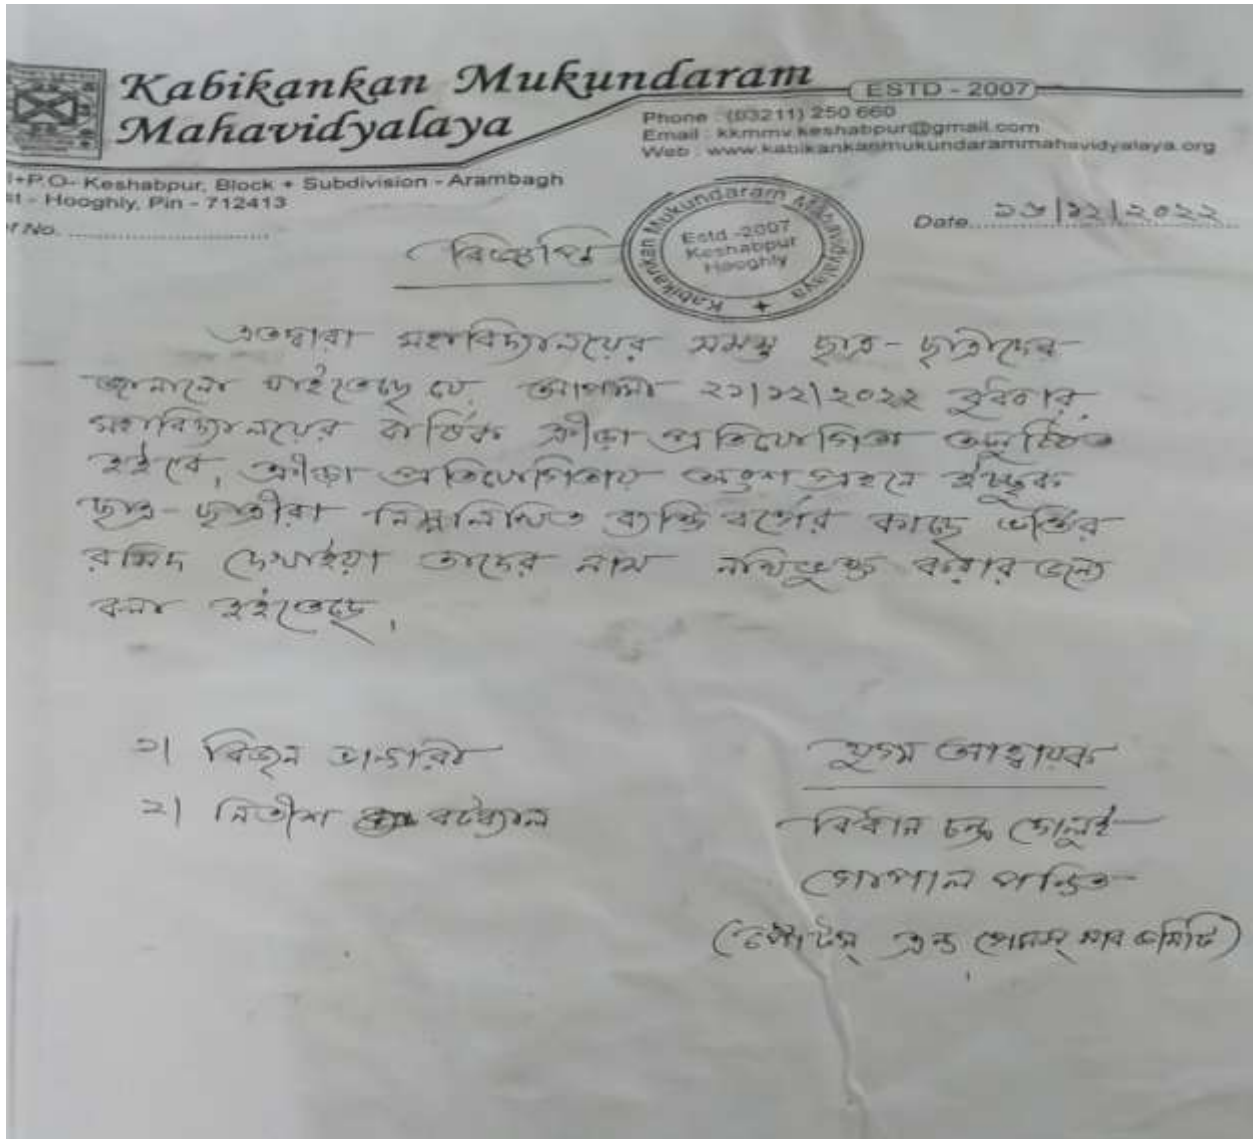 Kabikankan Mukundaram
Mahavidyalaya
ESTD - 2007
Phone : (03211) 250 660
Email : kkmmv.keshabpur@gmail.com
Web : www.kabikankanmukundarammahavidyalaya.org
+P.O- Keshabpur, Block + Subdivision - Arambagh
st - Hooghly, Pin - 712413
f No. ..............................
Date.... ১৬/১২/২০২২
বিজ্ঞপ্তি
Kabikankan Mukundaram Mahavidyalaya
Estd -2007
Keshabpur
Hooghly
এতদ্বারা মহাবিদ্যালয়ের সমস্ত ছাত্র-ছাত্রীদের
জানানো যাইতেছে যে, আগামী ২১/১২/২০২২ বুধবার,
মহাবিদ্যালয়ের বার্ষিক ক্রীড়া প্রতিযোগিতা অনুষ্ঠিত
হইবে, ক্রীড়া প্রতিযোগিতায় অংশ গ্রহনে ইচ্ছুক
ছাত্র-ছাত্রীরা নিম্নলিখিত ব্যক্তি বর্গের কাছে ভর্তির
রসিদ দেখাইয়া তাদের নাম নথিভুক্ত করার জন্যে
বলা হইতেছে,
১| বিজন ভান্ডারী
২| নিতীশ বটব্যাল
যুগ্ম আহ্বায়ক
বিধান চন্দ্র দোলুই
গোপাল পন্ডিত
(স্পোর্টস্ এন্ড গেমস্ সাব কমিটি)